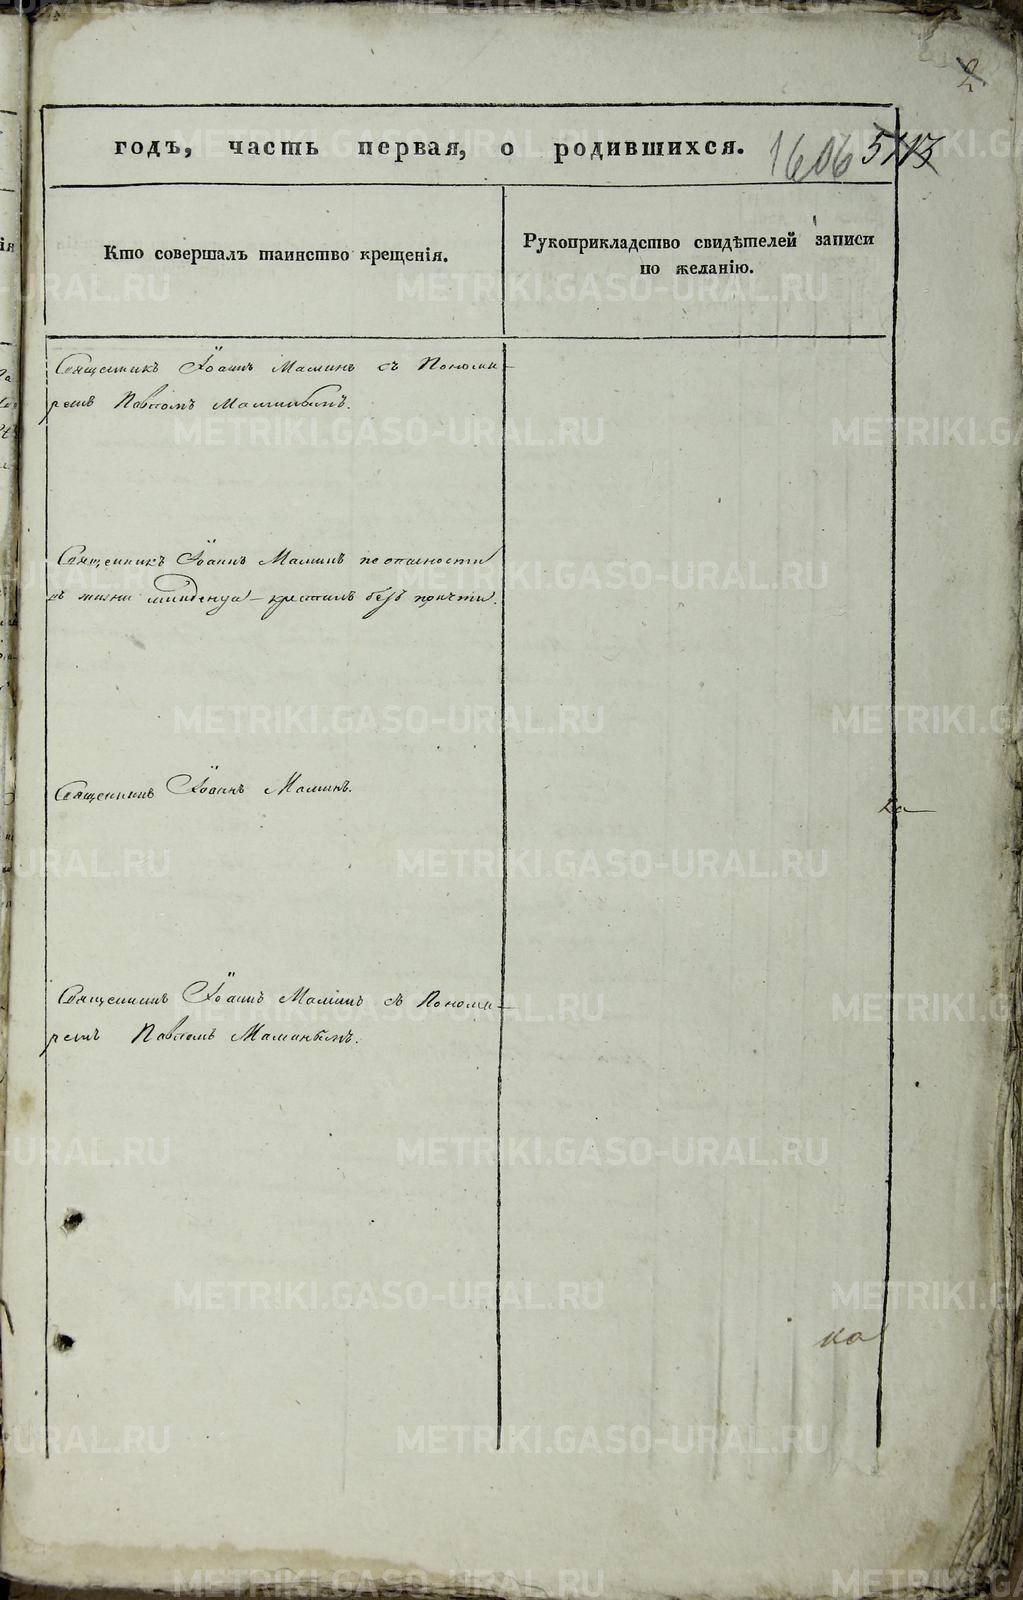 2
годъ, часть первая, о родившихся. 1606 5113
Кто совершалъ таинство крещенія.
Рукоприкладство свидѣтелей записи
по желанію.
Священникъ Іоаннъ Маминъ съ Понома-
ремъ Павломъ Маминымъ.
Священникъ Іоаннъ Маминъ по опасности
въ жизни младенца крестилъ безъ причта.
Священникъ Іоаннъ Маминъ.
Священникъ Іоаннъ Маминъ съ Понома-
ремъ Павломъ Маминымъ.
ка
METRIKI.GASO-URAL.RU